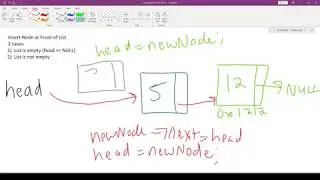 Insert Node at Front of List
2 cases
1) List is empty (head == NULL)
2) List is not empty
head = newNode;
head
5
12
NULL
0x1212
newNode->next = head
head = newNode;